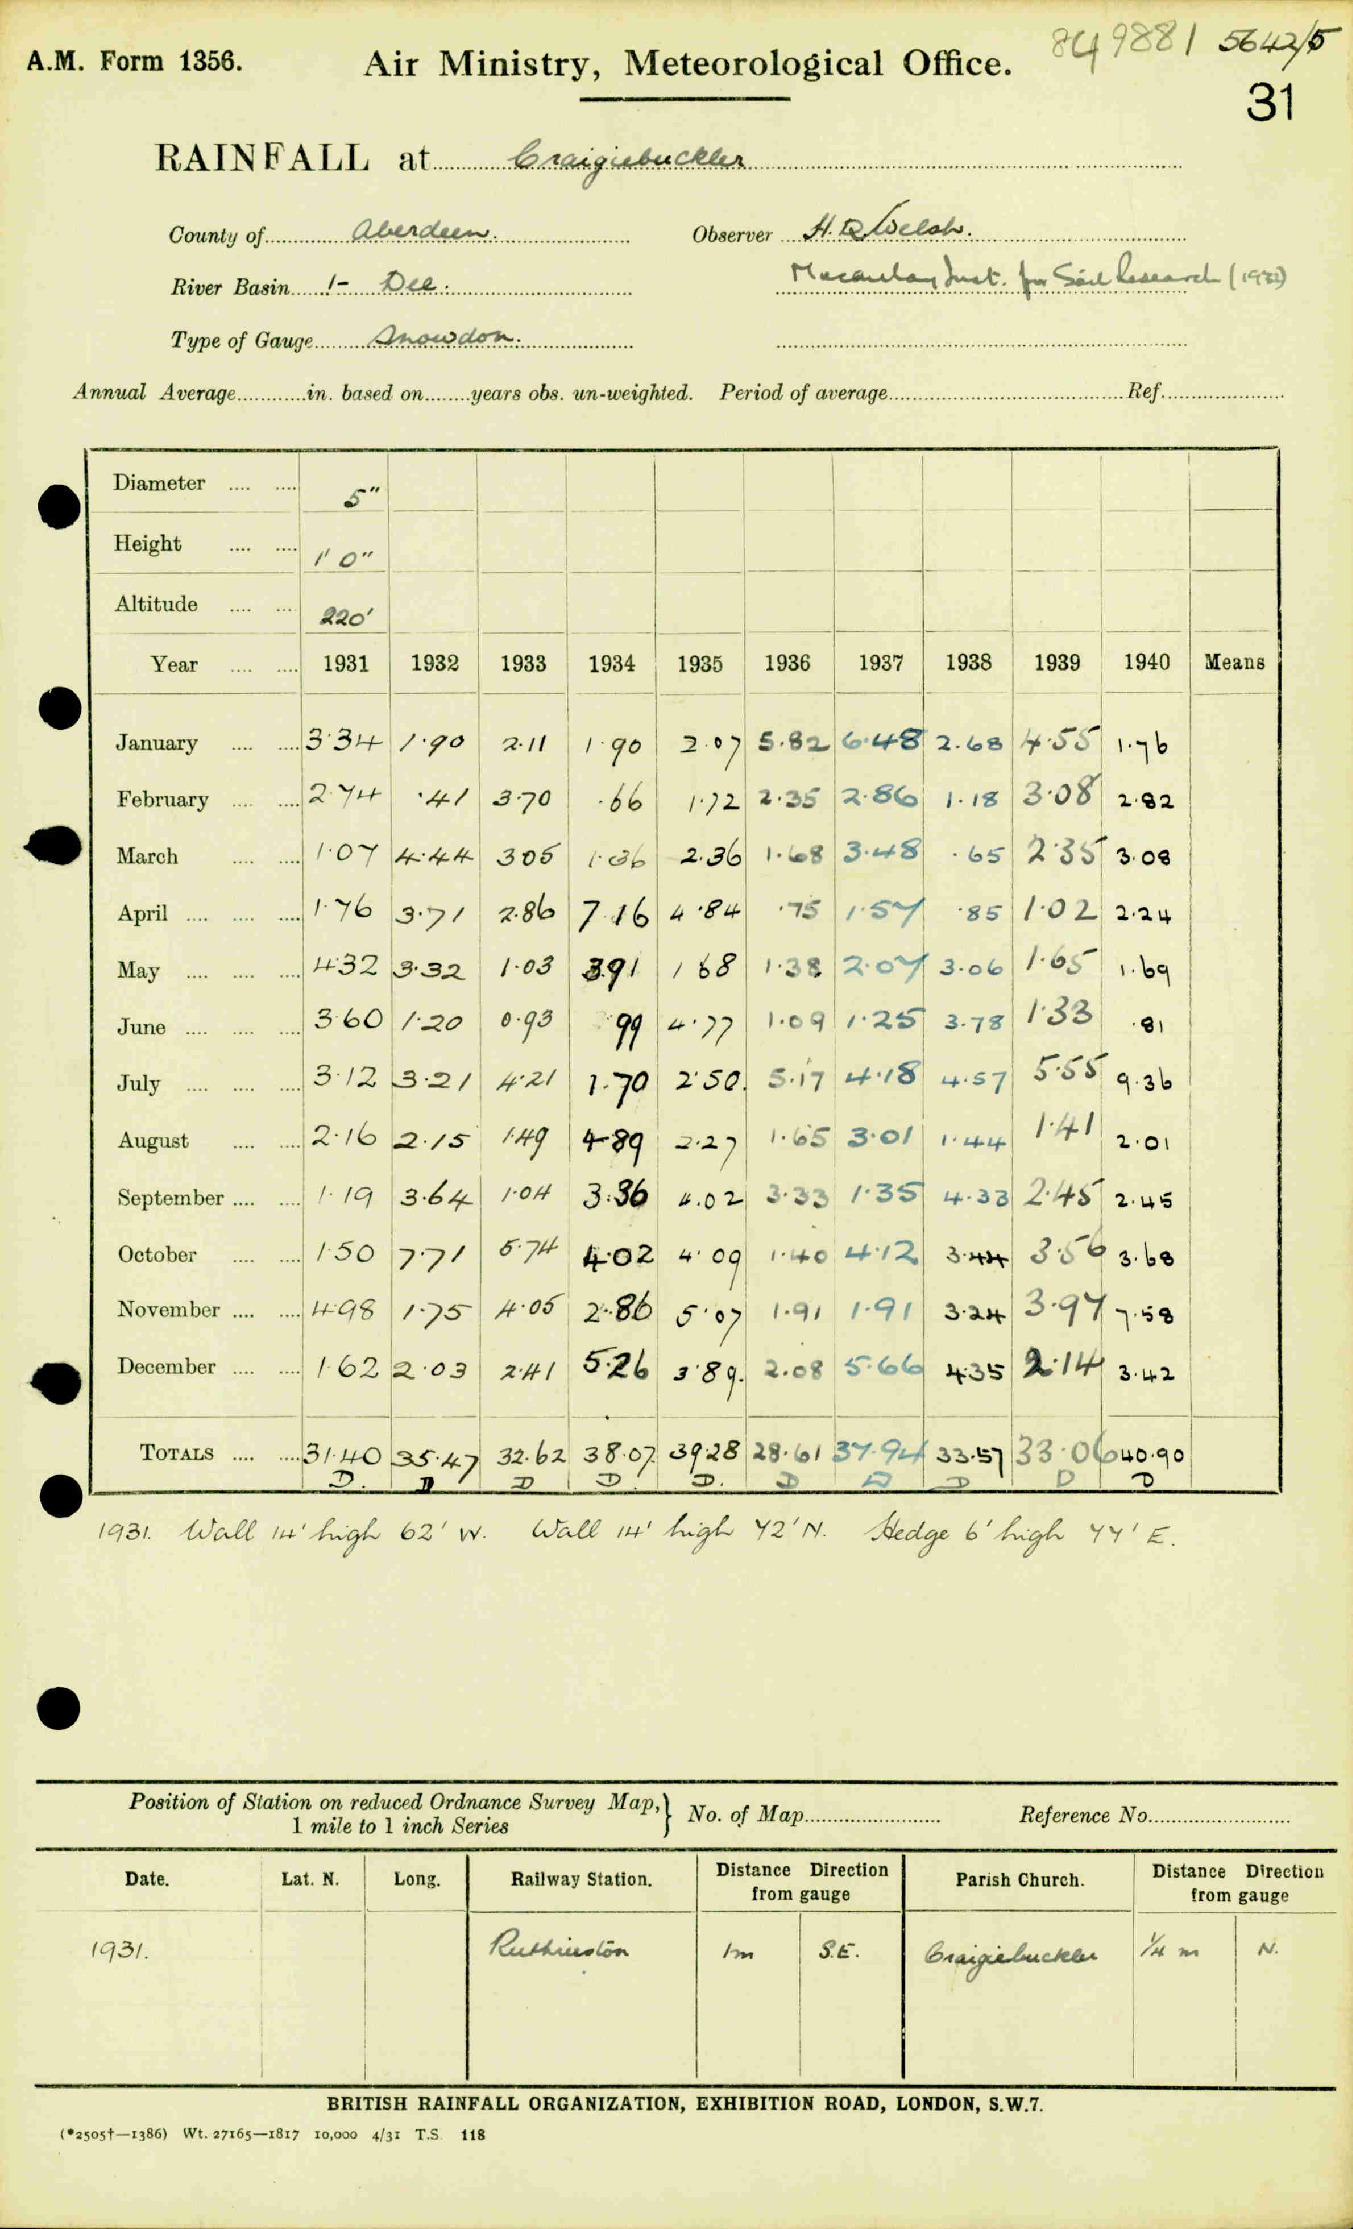 849881 5642/5
A.M. Form 1356. Air Ministry, Meteorological Office.
31
RAINFALL at Craigiebuckler
County of Aberdeen. Observer H. D. Welsh.
River Basin 1- Dee. Macaulay Inst. for Soil Research (1931)
Type of Gauge Snowdon.
Annual Average in. based on years obs. un-weighted. Period of average Ref.
Diameter 5"
Height 1' 0"
Altitude 220'
Year 1931 1932 1933 1934 1935 1936 1937 1938 1939 1940 Means
January 3.34 1.90 2.11 1.90 2.07 5.82 6.48 2.68 4.55 1.76
February 2.74 .41 3.70 .66 1.72 2.35 2.86 1.18 3.08 2.82
March 1.07 4.44 3.05 1.36 2.36 1.68 3.48 .65 2.35 3.08
April 1.76 3.71 2.86 7.16 4.84 .75 1.57 .85 1.02 2.24
May 4.32 3.32 1.03 3.91 1.68 1.38 2.07 3.06 1.65 1.69
June 3.60 1.20 0.93 .99 4.77 1.09 1.25 3.78 1.33 .81
July 3.12 3.21 4.21 1.70 2.50 5.17 4.18 4.57 5.55 9.36
August 2.16 2.15 1.49 4.89 2.27 1.65 3.01 1.44 1.41 2.01
September 1.19 3.64 1.04 3.36 4.02 3.33 1.35 4.33 2.45 2.45
October 1.50 7.71 5.74 4.02 4.09 1.40 4.12 3.44 3.56 3.68
November 4.98 1.75 4.05 2.86 5.07 1.91 1.91 3.24 3.97 7.58
December 1.62 2.03 2.41 5.26 3.89 2.08 5.66 4.35 2.14 3.42
TOTALS 31.40 35.47 32.62 38.07 39.28 28.61 37.94 33.57 33.06 40.90
D. D D D. D. D D D D D
1931. Wall 14' high 62' W. Wall 14' high 72' N. Hedge 6' high 77' E.
Position of Station on reduced Ordnance Survey Map,} No. of Map Reference No.
1 mile to 1 inch Series
Date. Lat. N. Long. Railway Station. Distance Direction from gauge Parish Church. Distance Direction from gauge
1931. Ruthrieston 1m S.E. Craigiebuckler 1/4 m N.
BRITISH RAINFALL ORGANIZATION, EXHIBITION ROAD, LONDON, S.W.7.
(*2505†—1386) Wt. 27165—1817 10,000 4/31 T.S. 118